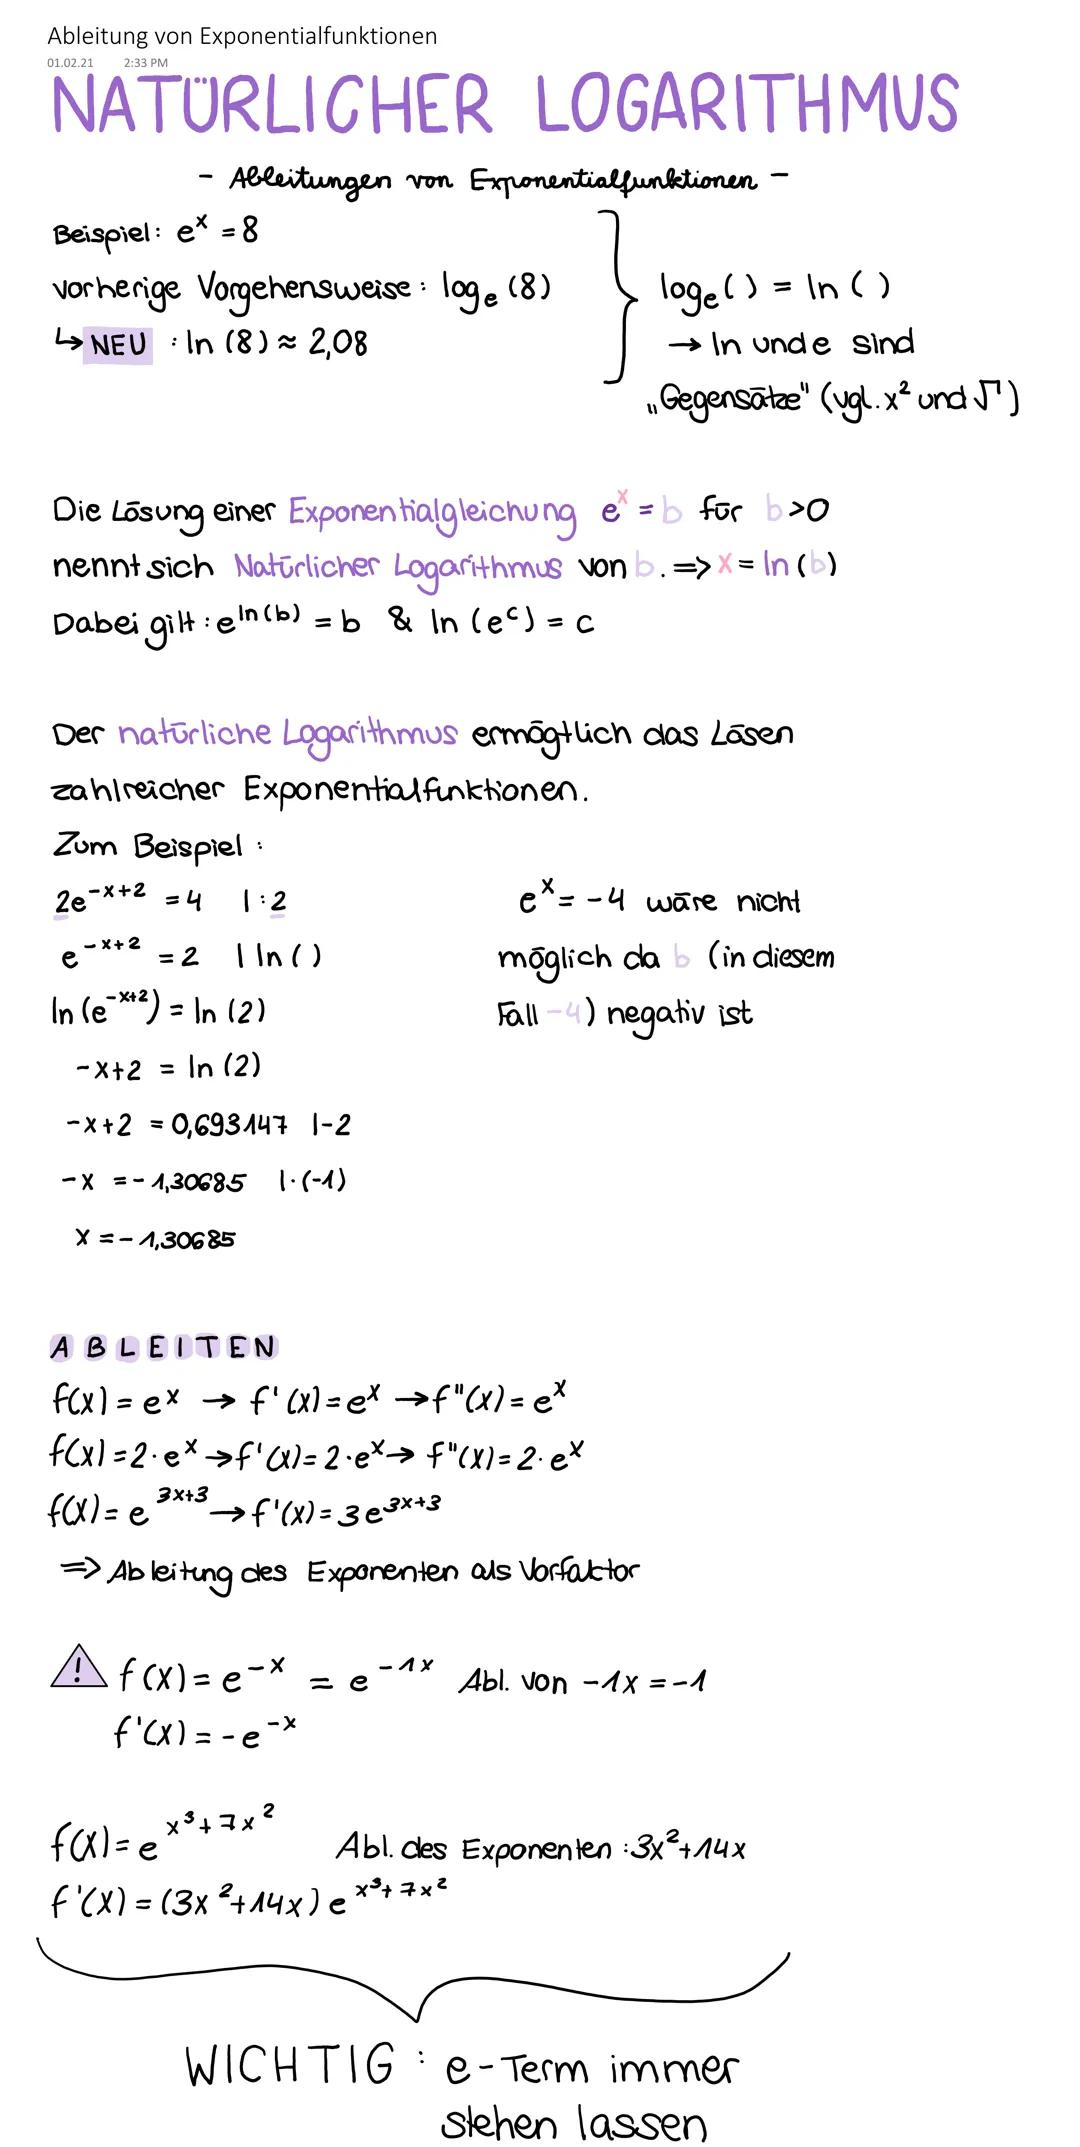 Ableitung von Exponentialfunktionen
01.02.21 2:33 PM
NATÜRLICHER LOGARITHMUS
- Ableitungen von Exponentialfunktionen -
Beispiel: eˣ = 8
vorherige Vorgehensweise: logₑ (8)
↳ NEU : ln (8) ≈ 2,08
logₑ ( ) = ln ( )
→ ln und e sind
„Gegensätze" (vgl. x² und √ )
Die Lösung einer Exponentialgleichung eˣ = b für b>0
nennt sich Natürlicher Logarithmus von b. => x = ln (b)
Dabei gilt: e^ln(b) = b & ln (e^c) = c
Der natürliche Logarithmus ermögtlich das Lösen
zahlreicher Exponentialfunktionen.
Zum Beispiel:
2e^-x+2 = 4 | :2
e^-x+2 = 2 | ln ( )
ln (e^-x+2) = ln (2)
-x+2 = ln (2)
-x+2 = 0,693147 |-2
-x = -1,30685 | ·(-1)
x = -1,30685
eˣ = -4 wäre nicht
möglich da b (in diesem
Fall -4) negativ ist
ABLEITEN
f(x) = eˣ → f'(x) = eˣ → f"(x) = eˣ
f(x) = 2·eˣ → f'(x) = 2·eˣ → f"(x) = 2·eˣ
f(x) = e^3x+3 → f'(x) = 3e^3x+3
=> Ableitung des Exponenten als Vorfaktor
! f(x) = e^-x = e^-1x Abl. von -1x = -1
f'(x) = -e^-x
f(x) = e^x³+7x² Abl. des Exponenten: 3x²+14x
f'(x) = (3x²+14x) e^x³+7x²
WICHTIG : e-Term immer
stehen lassen